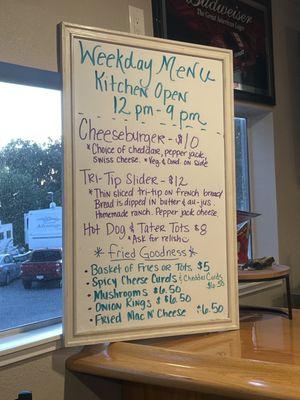 Budweiser
The Great American Lager
Weekday Menu
Kitchen Open
12 pm - 9 pm
Cheeseburger - $10
*Choice of cheddar, pepper jack,
Swiss cheese. *Veg. & Cond. on side
Tri-Tip Slider - $12
*Thin sliced tri-tip on french bread
Bread is dipped in butter & au-jus.
Homemade ranch. Pepper jack cheese.
Hot Dog & Tater Tots $8
*Ask for relish
*Fried Goodness*
* Basket of Fries or Tots $5
* Spicy Cheese Curds & Cheddar Curds $6.50
* Mushrooms $6.50
* Onion Rings $6.50
* Fried Mac N Cheese $6.50